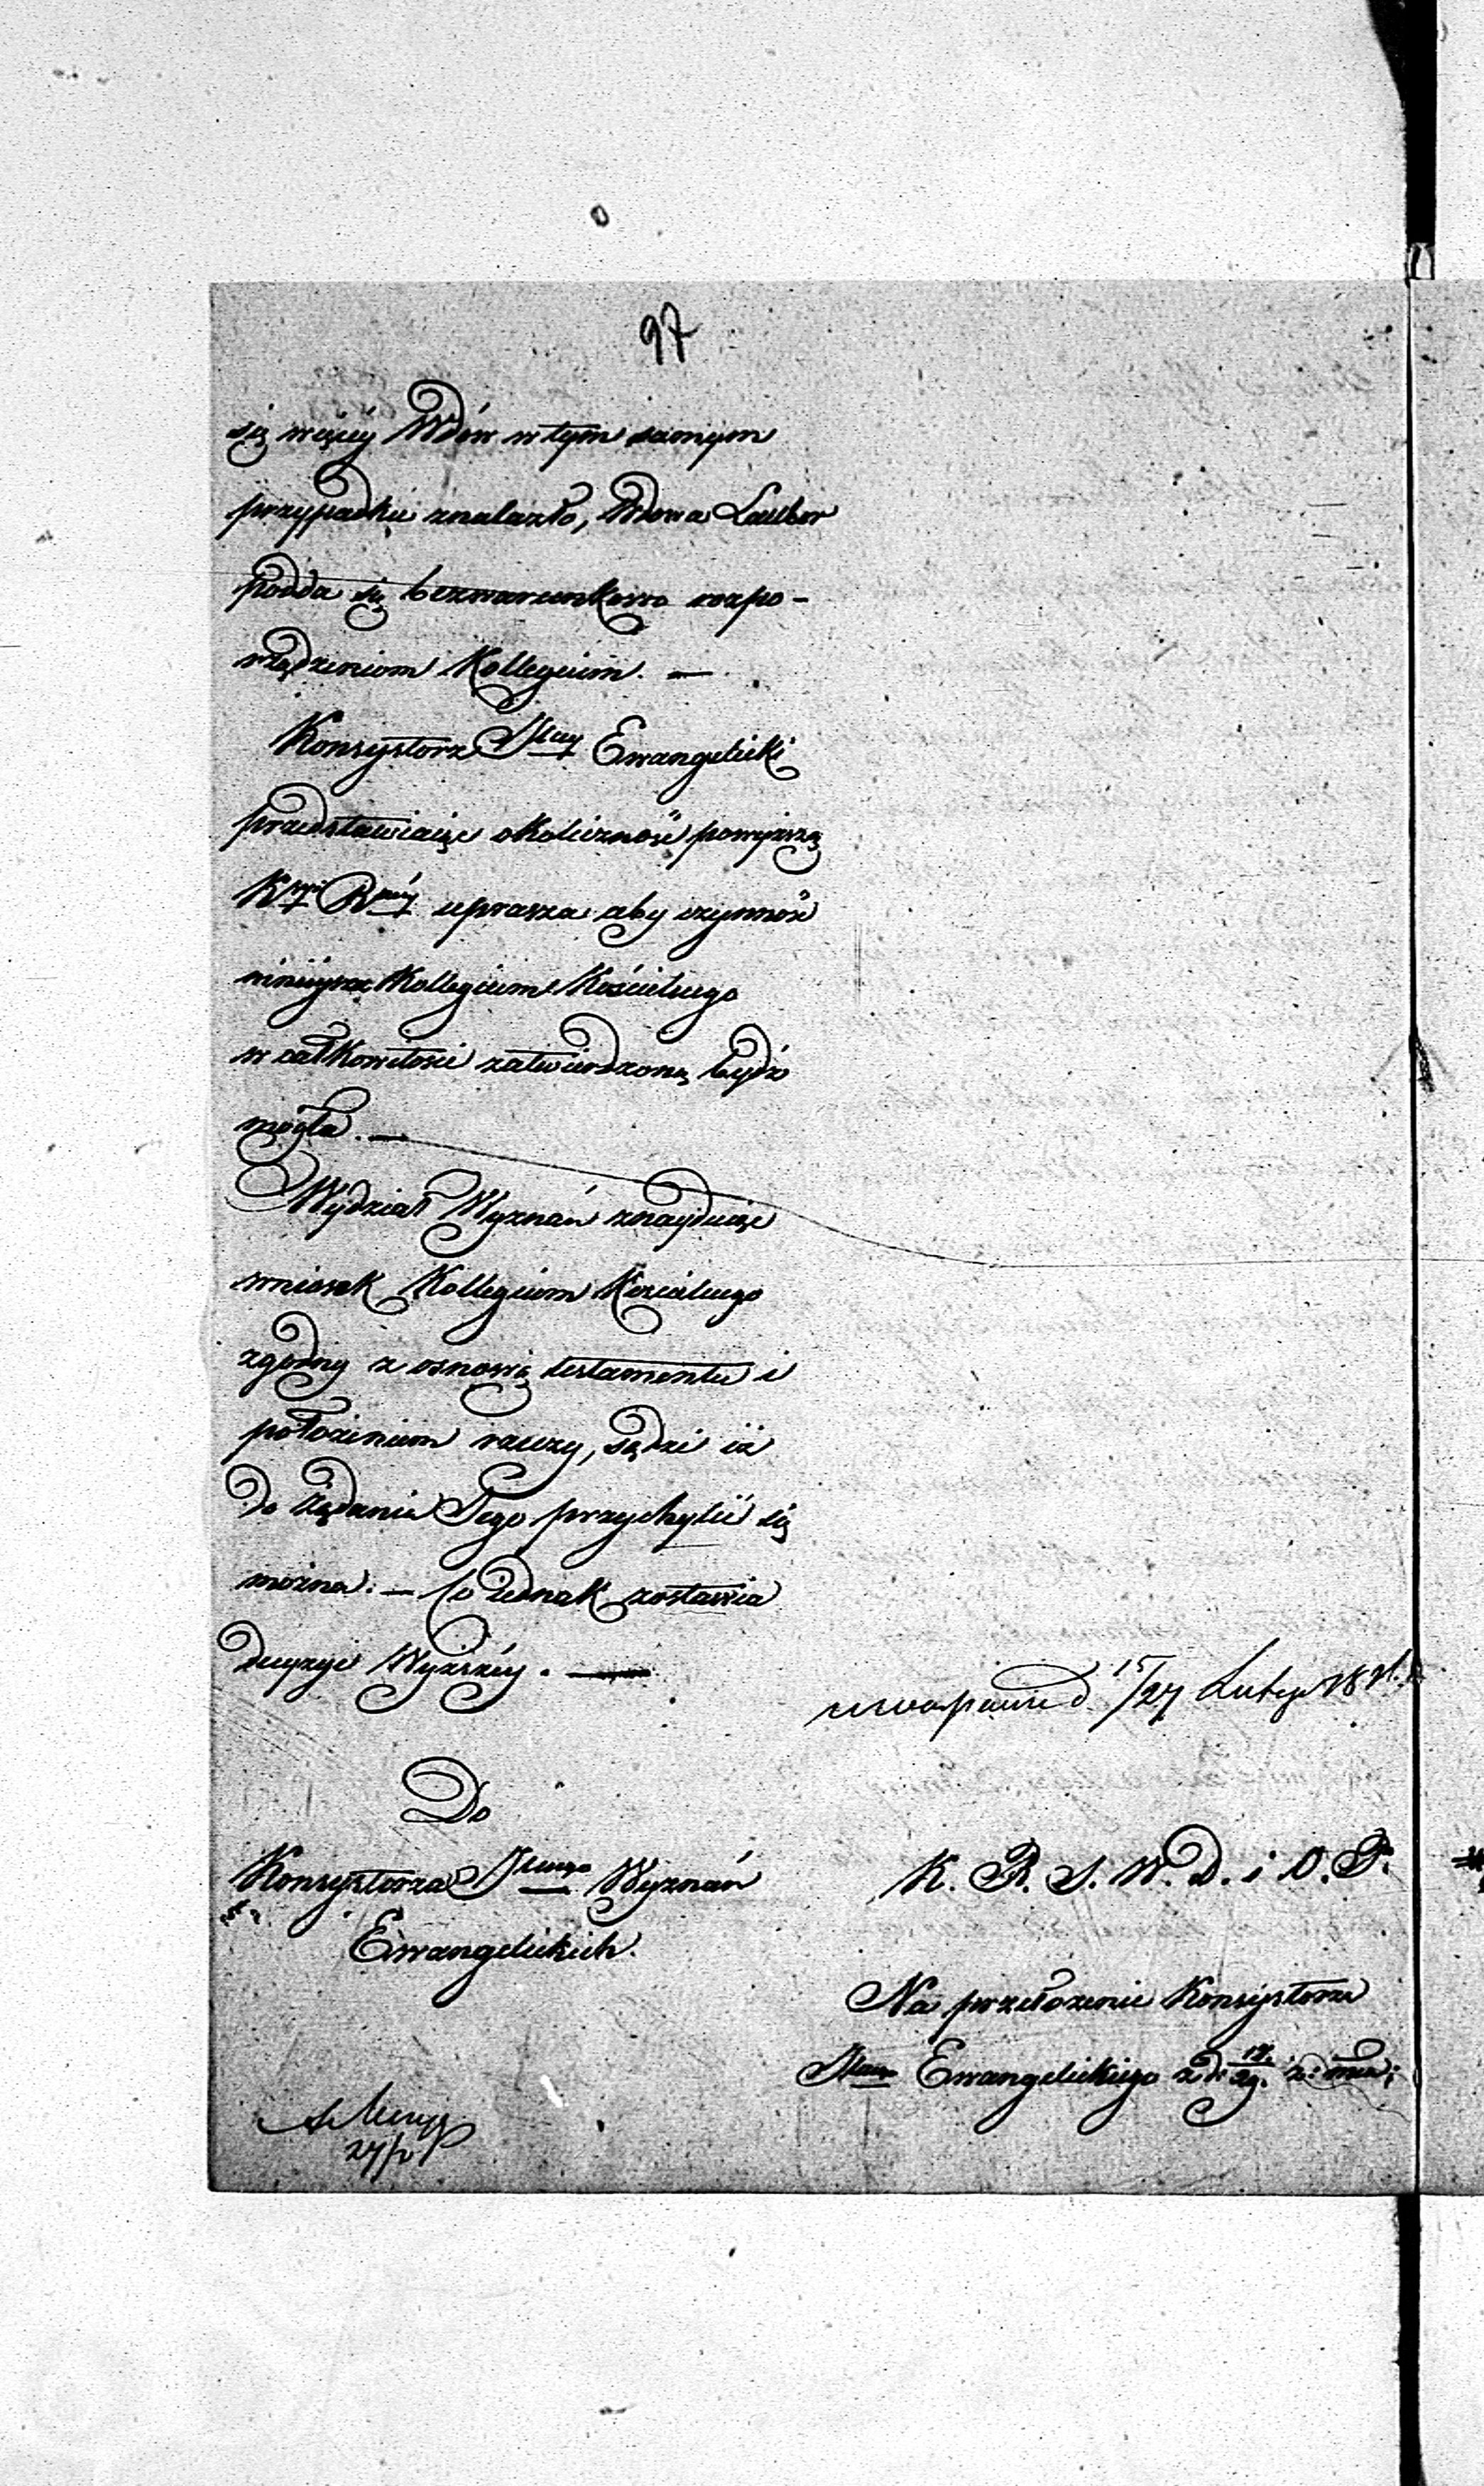 97
się więcéy Wdów w tym samym
przypadku znalazło, Wdowa Lauber
podda się bezwarunkowo rozpo-
rządzeniom Kollegium. —
Konsystorz Jlny Ewangelicki
przedstawiaiąc okoliczność powyższą
K R uprasza aby czynność
ninieysza Kollegium Kościelnego
w całkowitości zatwierdzoną bydź
mogła. —
Wydział Wyznań znayduiąc
wniosek Kollegium Kościelnego
zgodny z osnową testamentu i
położeniem rzeczy, sądzi iż
do żądania Tego przychylić się
można. — Co iednak zostawia
decyzyi Wyższéy. —
d. 15/27 Lutego
Do
Konsystorza Jlnego Wyznań
Ewangelickich.
K. R. S. W. D. i O. P.
Na przełożenie Konsystorza
Jlnego Ewangelickiego z d. 17/29. z. m.
27/